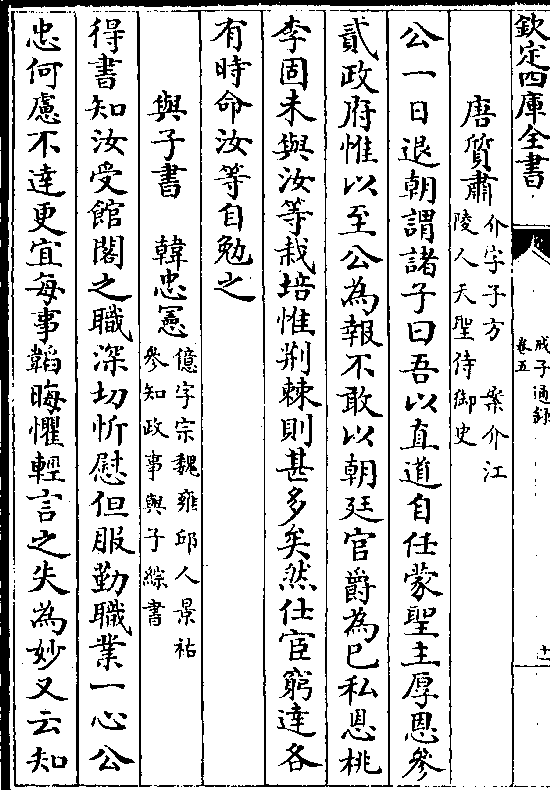 欽定四庫全書
戒子通錄
卷五
十一
唐質肅介字子方 案介江
陵人天聖侍御史
公一日退朝謂諸子曰吾以直道自任蒙聖主厚恩參
貳政府惟以至公為報不敢以朝廷官爵為已私恩桃
李固未與汝等栽培惟荆棘則甚多矣然仕宦窮達各
有時命汝等自勉之
與子書 韓忠憲億字宗魏雍邱人景祐
參知政事與子綜書
得書知汝受館閣之職深切忻慰但服勤職業一心公
忠何慮不達更宜每事韜晦懼輕言之失為妙又云知